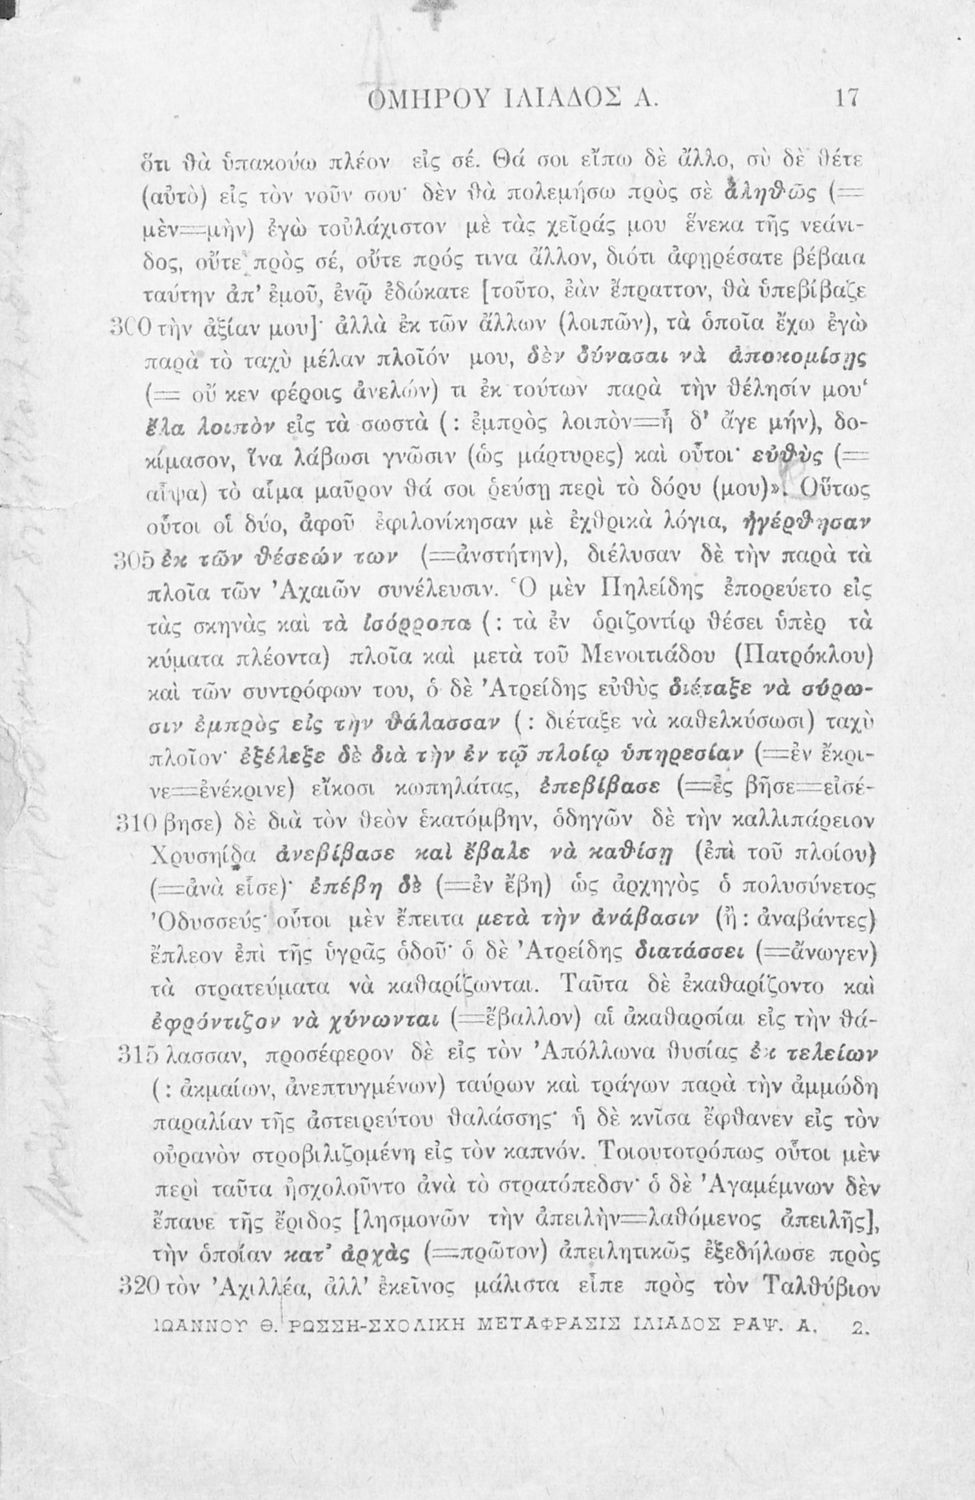 ΟΜΗΡΟΥ ΙΛΙΑΔΟΣ Α. 17
ὅτι θὰ ὑπακούω πλέον εἰς σέ. Θά σοι εἴπω δὲ ἄλλο, σὺ δὲ θέτε
(αὐτὸ) εἰς τὸν νοῦν σου· δὲν θὰ πολεμήσω πρὸς σὲ ἀληθῶς (=
μὲν=μὴν) ἐγὼ τοὐλάχιστον μὲ τὰς χεῖράς μου ἕνεκα τῆς νεάνι-
δος, οὔτε πρὸς σέ, οὔτε πρός τινα ἄλλον, διότι ἀφῃρέσατε βέβαια
ταύτην ἀπ' ἐμοῦ, ἐνῷ ἐδώκατε [τοῦτο, ἐὰν ἔπραττον, θὰ ὑπεβίβαζε
300 τὴν ἀξίαν μου]· ἀλλὰ ἐκ τῶν ἄλλων (λοιπῶν), τὰ ὁποῖα ἔχω ἐγὼ
παρὰ τὸ ταχὺ μέλαν πλοῖόν μου, δὲν δύνασαι νὰ ἀποκομίσῃς
(= οὔ κεν φέροις ἀνελών) τι ἐκ τούτων παρὰ τὴν θέλησίν μου·
ἔλα λοιπὸν εἰς τὰ σωστὰ (: ἐμπρὸς λοιπὸν=ἦ δ' ἄγε μήν), δο-
κίμασον, ἵνα λάβωσι γνῶσιν (ὡς μάρτυρες) καὶ οὗτοι· εὐθὺς (=
αἶψα) τὸ αἷμα μαῦρον θά σοι ῥεύσῃ περὶ τὸ δόρυ (μου)». Οὕτως
οὗτοι οἱ δύο, ἀφοῦ ἐφιλονίκησαν μὲ ἐχθρικὰ λόγια, ἠγέρθησαν
305 ἐκ τῶν θέσεών των (=ἀνστήτην), διέλυσαν δὲ τὴν παρὰ τὰ
πλοῖα τῶν Ἀχαιῶν συνέλευσιν. Ὁ μὲν Πηλείδης ἐπορεύετο εἰς
τὰς σκηνὰς καὶ τὰ ἰσόρροπα (: τὰ ἐν ὁριζοντίῳ θέσει ὑπὲρ τὰ
κύματα πλέοντα) πλοῖα καὶ μετὰ τοῦ Μενοιτιάδου (Πατρόκλου)
καὶ τῶν συντρόφων του, ὁ δὲ Ἀτρείδης εὐθὺς διέταξε νὰ σύρω-
σιν ἐμπρὸς εἰς τὴν θάλασσαν (: διέταξε νὰ καθελκύσωσι) ταχὺ
πλοῖον· ἐξέλεξε δὲ διὰ τὴν ἐν τῷ πλοίῳ ὑπηρεσίαν (=ἐν ἔκρι-
νε=ἐνέκρινε) εἴκοσι κωπηλάτας, ἐπεβίβασε (=ἐς βῆσε=εἰσέ-
310 βησε) δὲ διὰ τὸν θεὸν ἑκατόμβην, ὁδηγῶν δὲ τὴν καλλιπάρειον
Χρυσηίδα ἀνεβίβασε καὶ ἔβαλε νὰ καθίσῃ (ἐπὶ τοῦ πλοίου)
(=ἀνὰ εἷσε)· ἐπέβη δὲ (=ἐν ἔβη) ὡς ἀρχηγὸς ὁ πολυσύνετος
Ὀδυσσεύς· οὗτοι μὲν ἔπειτα μετὰ τὴν ἀνάβασιν (ἢ: ἀναβάντες)
ἔπλεον ἐπὶ τῆς ὑγρᾶς ὁδοῦ· ὁ δὲ Ἀτρείδης διατάσσει (=ἄνωγεν)
τὰ στρατεύματα νὰ καθαρίζωνται. Ταῦτα δὲ ἐκαθαρίζοντο καὶ
ἐφρόντιζον νὰ χύνωνται (=ἔβαλλον) αἱ ἀκαθαρσίαι εἰς τὴν θά-
315 λασσαν, προσέφερον δὲ εἰς τὸν Ἀπόλλωνα θυσίας ἐκ τελείων
(: ἀκμαίων, ἀνεπτυγμένων) ταύρων καὶ τράγων παρὰ τὴν ἀμμώδη
παραλίαν τῆς ἀστειρεύτου θαλάσσης· ἡ δὲ κνῖσα ἔφθανεν εἰς τὸν
οὐρανὸν στροβιλιζομένη εἰς τὸν καπνόν. Τοιουτοτρόπως οὗτοι μὲν
περὶ ταῦτα ἠσχολοῦντο ἀνὰ τὸ στρατόπεδον· ὁ δὲ Ἀγαμέμνων δὲν
ἔπαυε τῆς ἔριδος [λησμονῶν τὴν ἀπειλὴν=λαθόμενος ἀπειλῆς],
τὴν ὁποίαν κατ' ἀρχὰς (=πρῶτον) ἀπειλητικῶς ἐξεδήλωσε πρὸς
320 τὸν Ἀχιλλέα, ἀλλ' ἐκεῖνος μάλιστα εἶπε πρὸς τὸν Ταλθύβιον
ΙΩΑΝΝΟΥ Θ. ΡΩΣΣΗ-ΣΧΟΛΙΚΗ ΜΕΤΑΦΡΑΣΙΣ ΙΛΙΑΔΟΣ ΡΑΨ. Α. 2.